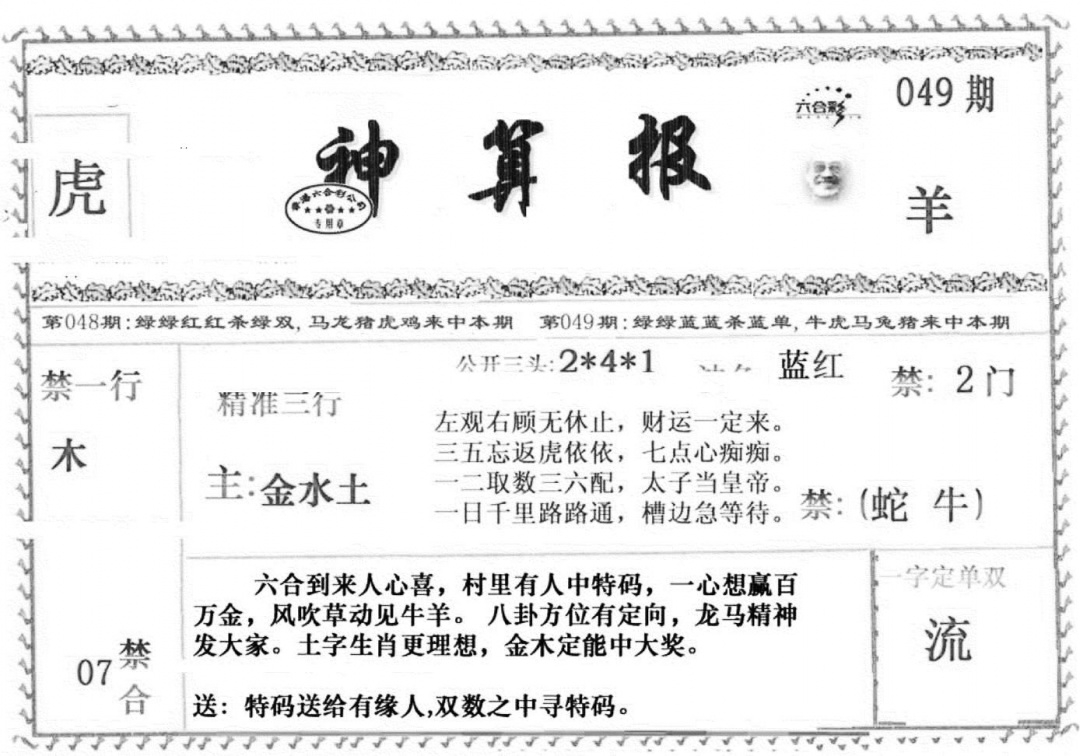 049期
六合彩
虎
神算报
香港六合彩公司
专用章
羊
第048期:绿绿红红杀绿双,马龙猪虎鸡来中本期 第049期:绿绿蓝蓝杀蓝单,牛虎马兔猪来中本期
禁一行
木
精准三行
主:金水土
公开三头:2*4*1
蓝红
禁:2门
左观右顾无休止，财运一定来。
三五忘返虎依依，七点心痴痴。
一二取数三六配，太子当皇帝。
一日千里路路通，槽边急等待。
禁:(蛇 牛)
07禁合
六合到来人心喜，村里有人中特码，一心想赢百
万金，风吹草动见牛羊。八卦方位有定向，龙马精神
发大家。土字生肖更理想，金木定能中大奖。
送：特码送给有缘人,双数之中寻特码。
一字定单双
流